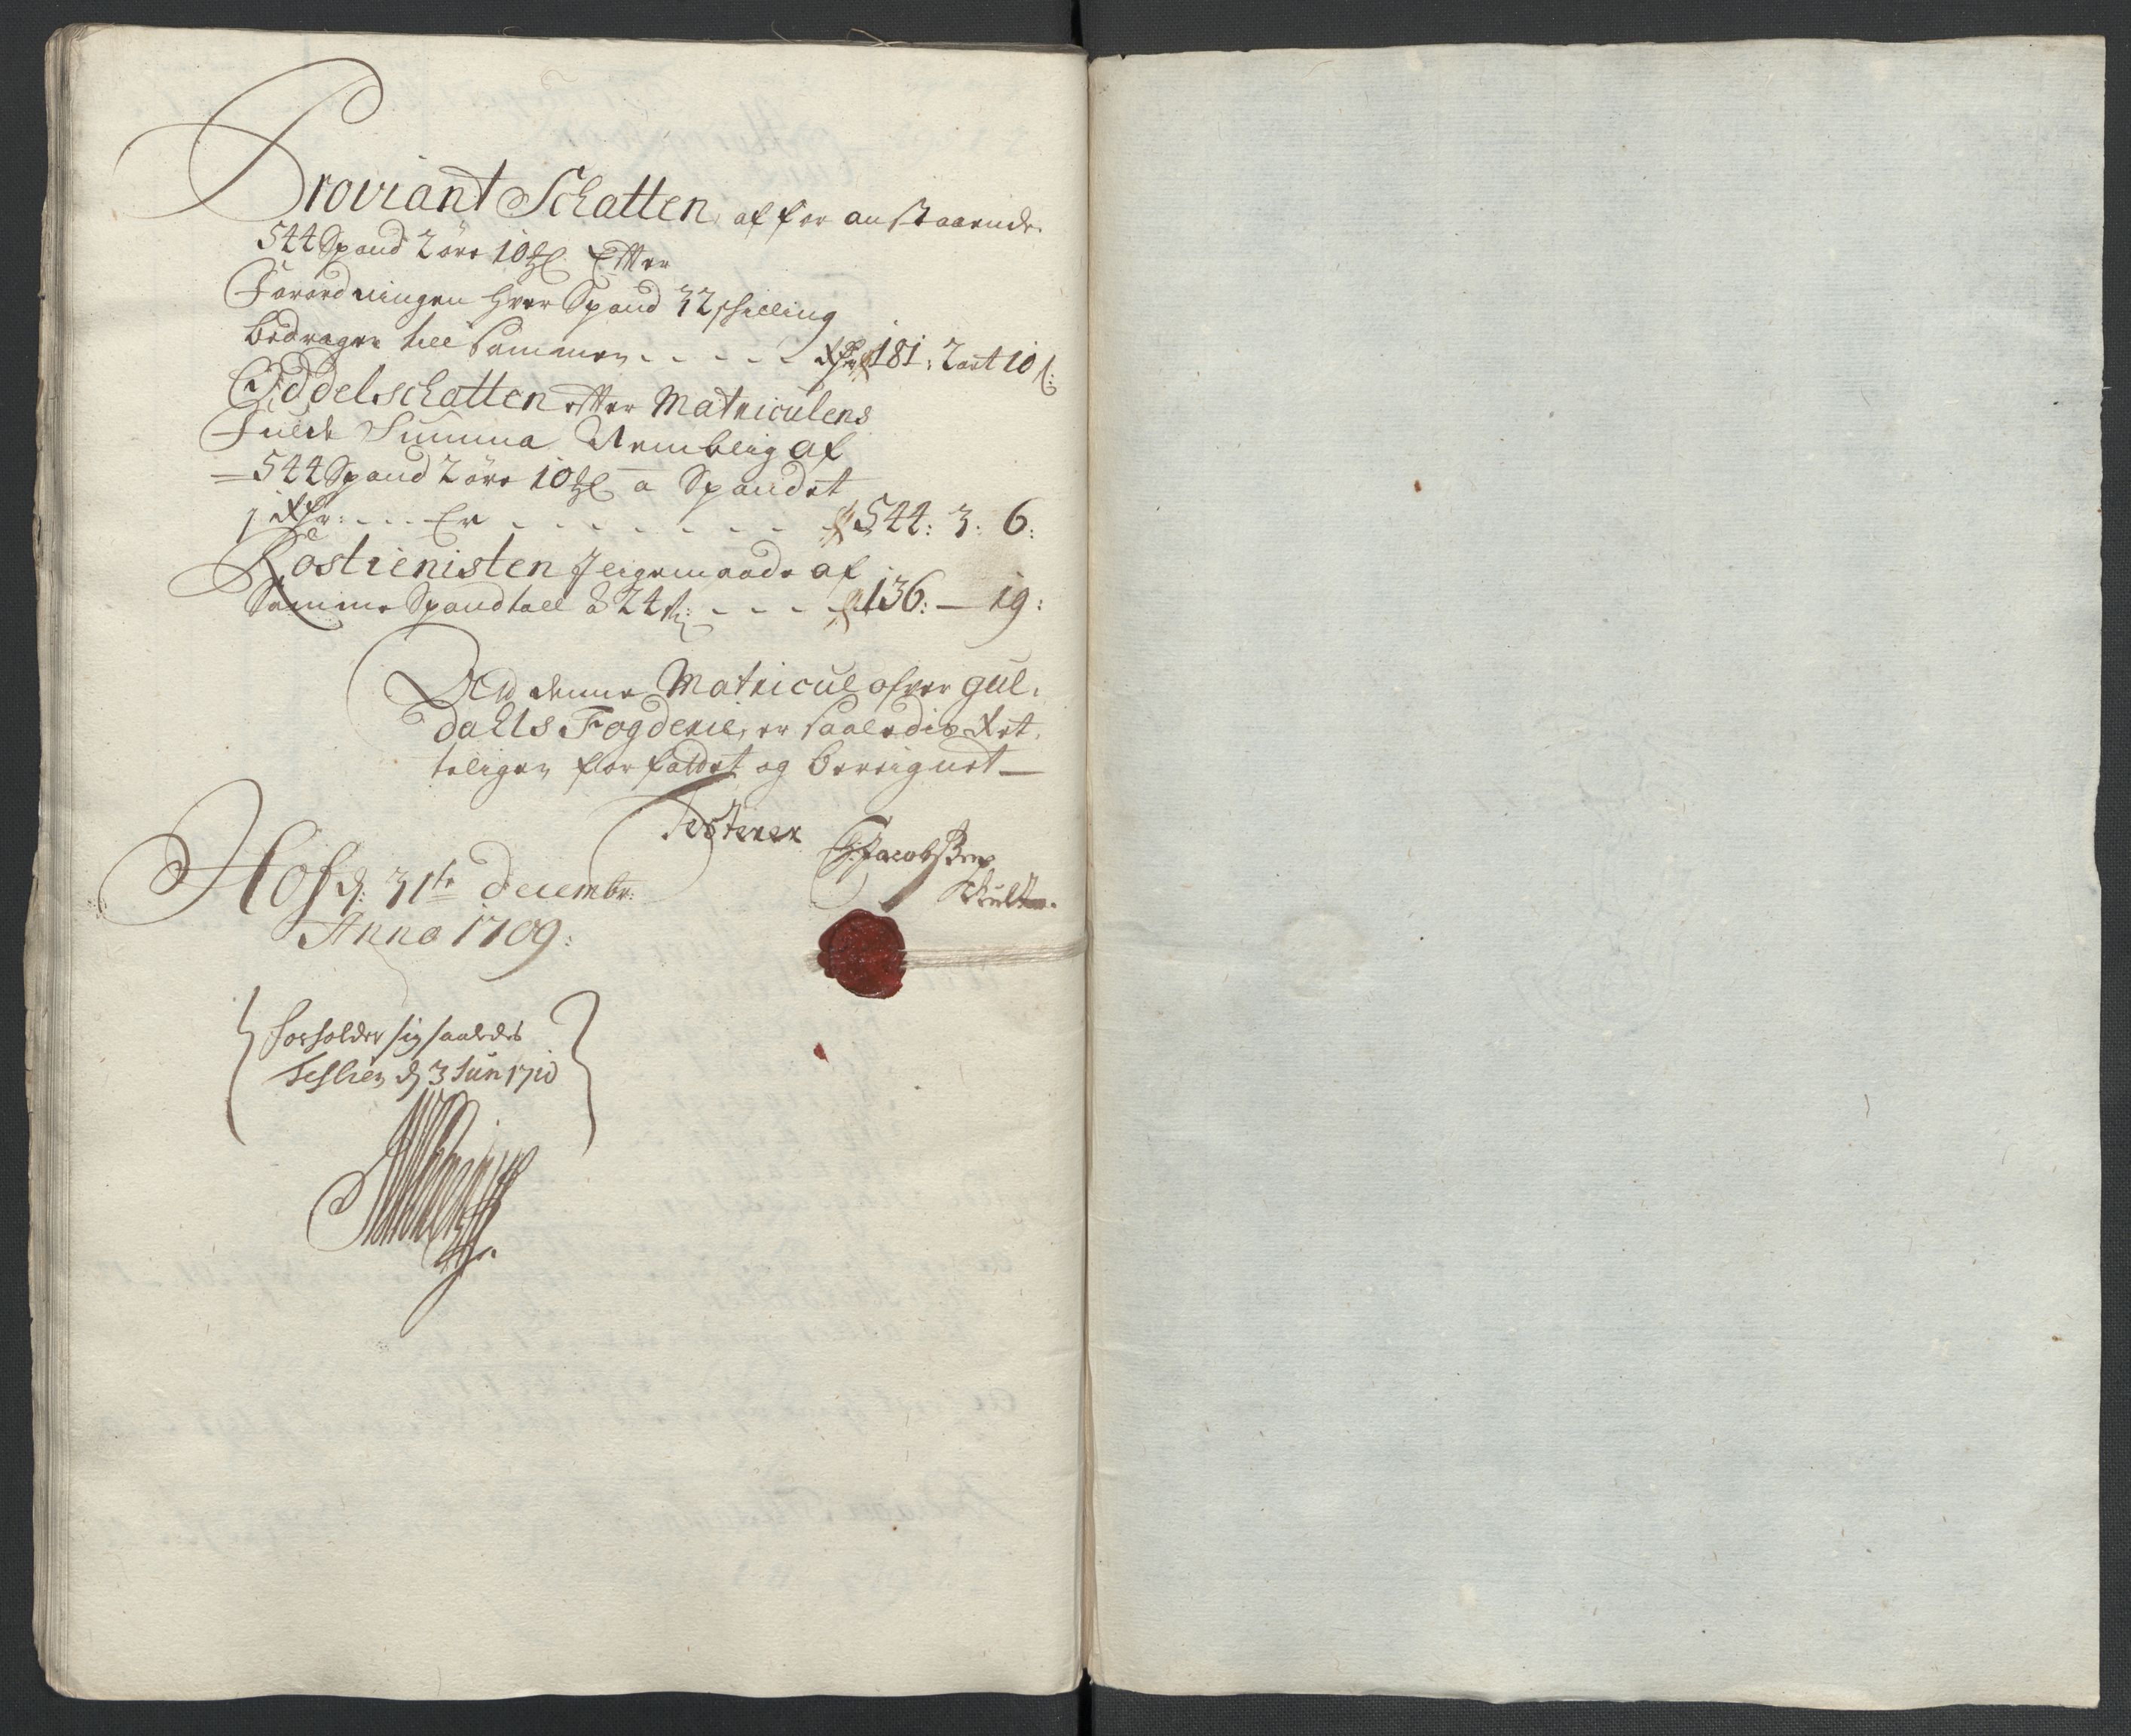 Proviant Schatten, af for anstaaende
544 Spand 2 øre 10 [?] Efter
Forordningen hver Spand 32 schilling
bedragen till sammen - - - - - Rdr 181: 2 ort 10 s:
Oddelschatten efter Matriculens
Fulde Summa Nemblig af
544 Spand 2 øre 10 a Spandet
1 Rdr: - - - Er - - - - - - - 544: 3: 6:
Rostienisten J ligemaade af
Samme Spandtall à 24 s: - - - - 136: — 19:
denne Matricul ofver Gul-
dalls Fogderie, er saaledis Ret-
teligen forfatdet og bereignet —
Testerer
Jacobsen
Hof d: 31te decembr:
Anno 1709:
forholder sig saaledes
Testier d 3 Jun 1710